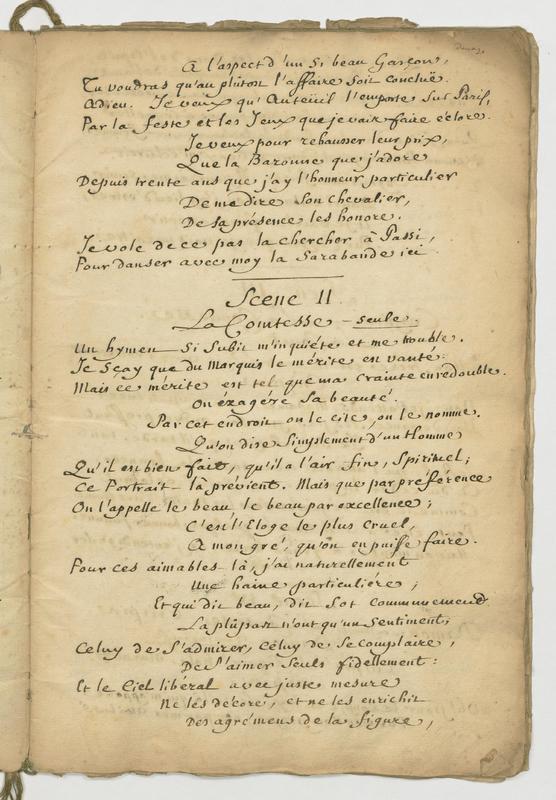 A l'aspect d'un si beau Garçon,
Tu voudras qu'au plûtost l'affaire soit concluë.
Adieu. Je veux qu'Auteüil l'emporte sur Paris,
Par la feste et les Jeux que je vais faire éclore.
Je veux pour rehausser leur prix,
Que la Baronne que j'adore
Depuis trente ans que j'ay l'honneur particulier
De me dire son chevalier,
De sa présence les honore.
Je vole de ce pas la chercher à Passi,
Pour danser avec moy la Sarabande ici
Scene II.
La Comtesse - seule.
Un hymen si subit m'inquiéte et me trouble.
Je sçay que du Marquis le mérite est vanté:
Mais ce mérite est tel que ma crainte en redouble.
On éxagére sa beauté.
Par cet endroit on le cite, on le nomme.
Qu'on dise simplement d'un Homme
Qu'il est bien fait, qu'il a l'air fin, Spirituel;
Ce Portrait là prévient. Mais que par préférence
On l'appelle le beau, le beau par excellence;
C'est l'Eloge le plus cruel,
A mon gré, qu'on en puisse faire.
Pour ces aimables là, j'ai naturellement
Une haine particuliere;
Et qui dit beau, dit Sot communement
La plûpart n'ont qu'un sentiment;
Celuy de s'admirer, Celuy de se complaire,
De s'aimer seuls fidellement:
Et le Ciel libéral avec juste mesure
Ne les décore, et ne les enrichit
Des agrémens de la figure,